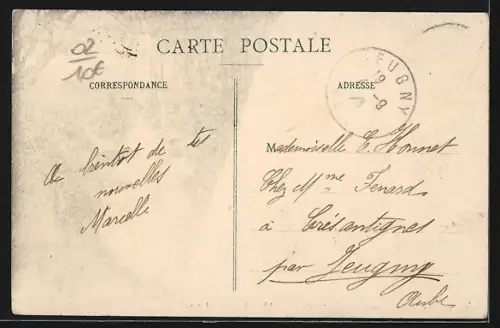 02
10€
CARTE POSTALE
CORRESPONDANCE
ADRESSE
EUGNY
19 -8
A bientot de tes
nouvelles
Marcelle
Mademoiselle C. Honnet
Chez Mme Fenard
à Crésantignes
par Jeugny
Aube